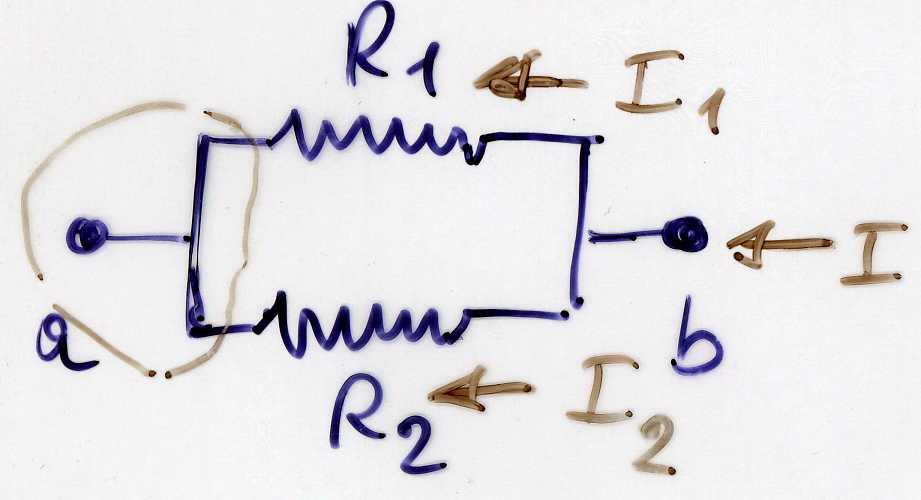 R1 I1
I
a b
R2 I2